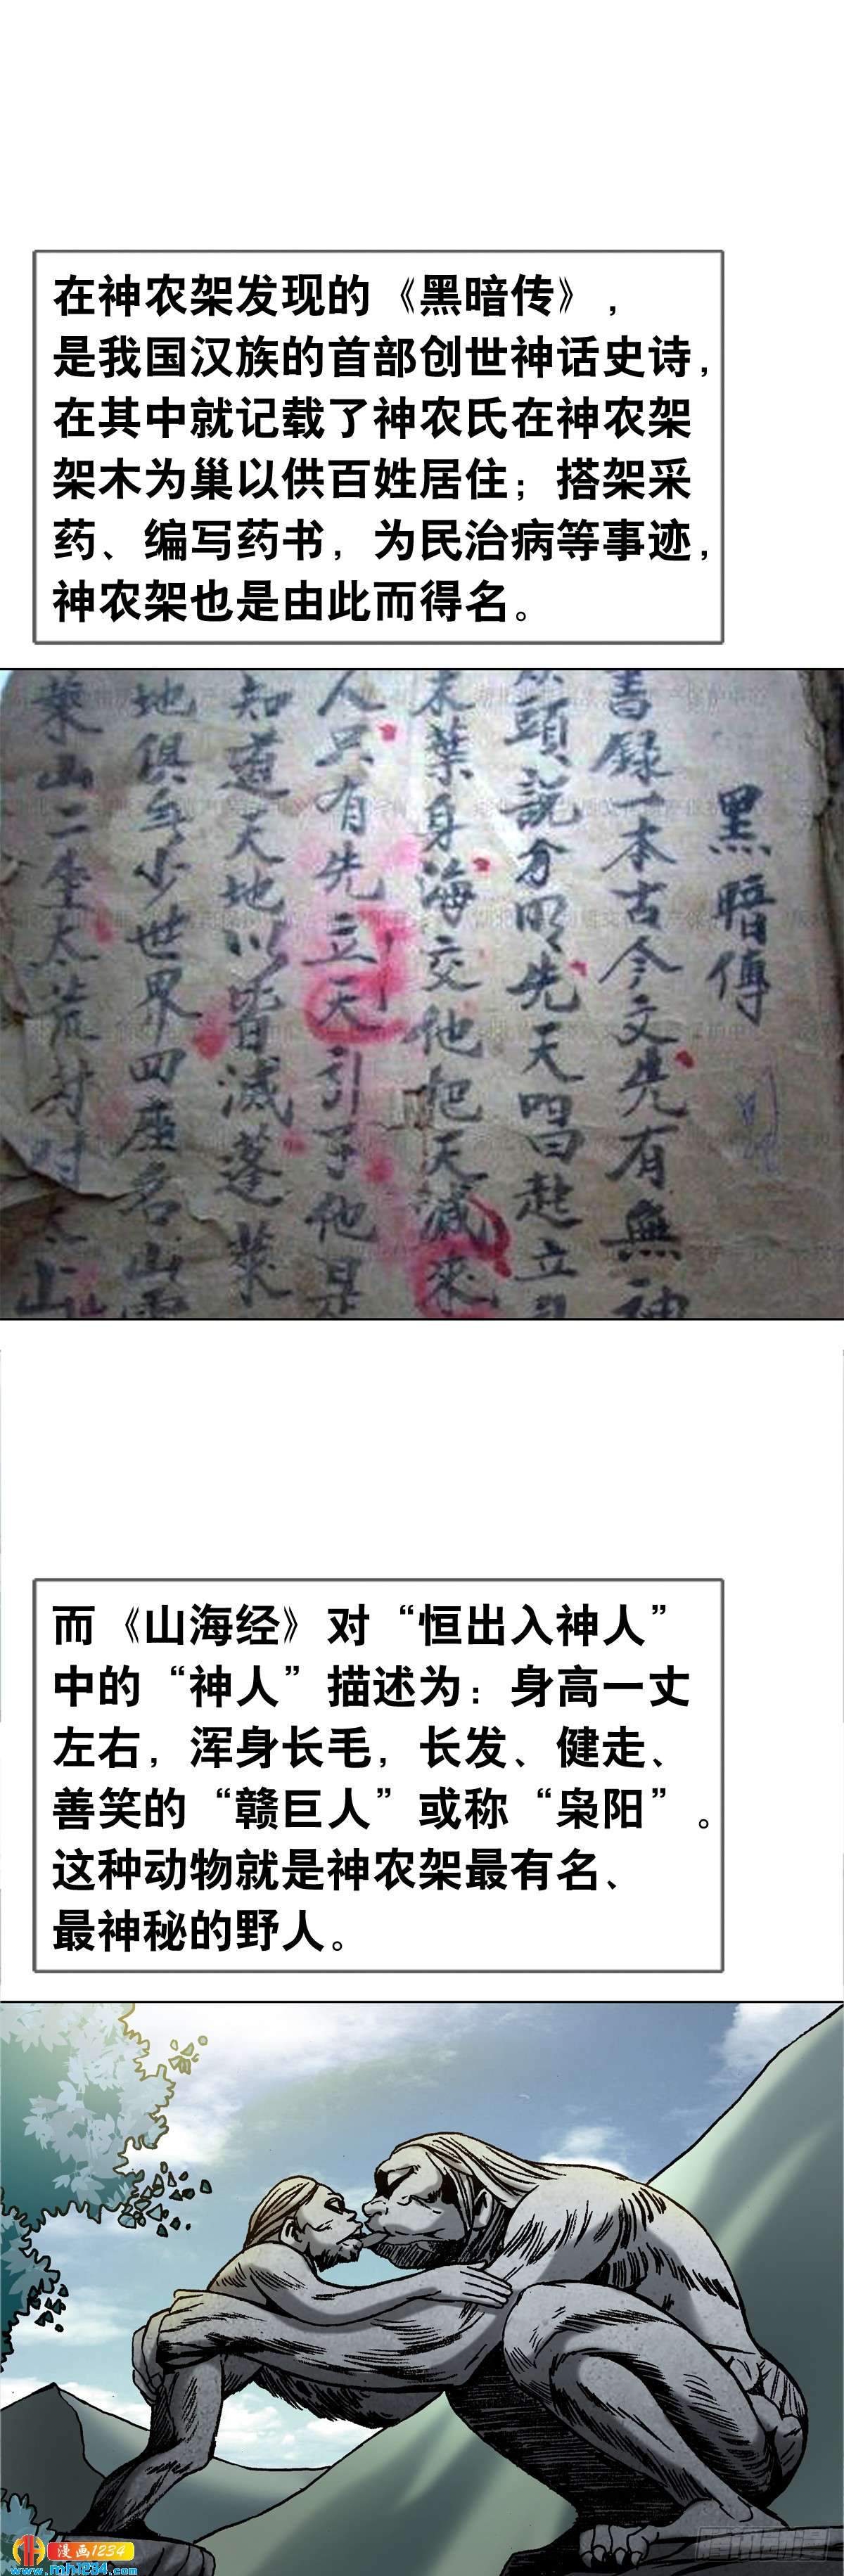 在神农架发现的《黑暗传》，
是我国汉族的首部创世神话史诗，
在其中就记载了神农氏在神农架
架木为巢以供百姓居住；搭架采
药、编写药书，为民治病等事迹，
神农架也是由此而得名。
黑暗傳
書錄一本古今文先有無神
頭說分明先天唱赴立
葉身海交他把天滅來
人只有先立天引子他是
知道天地以皆滅蓬萊
地俱年少世界四座名山
葉山二生太荒村
而《山海经》对“恒出入神人”
中的“神人”描述为：身高一丈
左右，浑身长毛，长发、健走、
善笑的“赣巨人”或称“枭阳”。
这种动物就是神农架最有名、
最神秘的野人。
漫画1234
www.mh1234.com